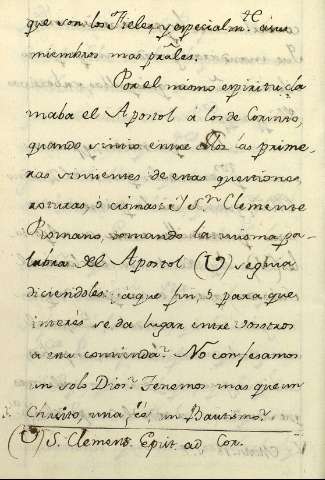 que son los Fieles, y especialm.te à sus
miembros mas prãles.
Por el mismo espiritu cla
maba el Apostol á los de Corinto,
quando sintio entre ellos las prime
ras simientes de estas questiones,
roturas, ò cismas: è y S.n Clemente
Romano, tomando la misma pa-
labra del Apostol (U) seguia
diciendoles: à que fin, ò para que
interés se da lugar entre vosotros
a esta contienda? No confesamos
un solo Dios? Tenemos mas que un
Christo, una fé, un Bautismo?
(U) S. Clemens Epist. ad Cor.